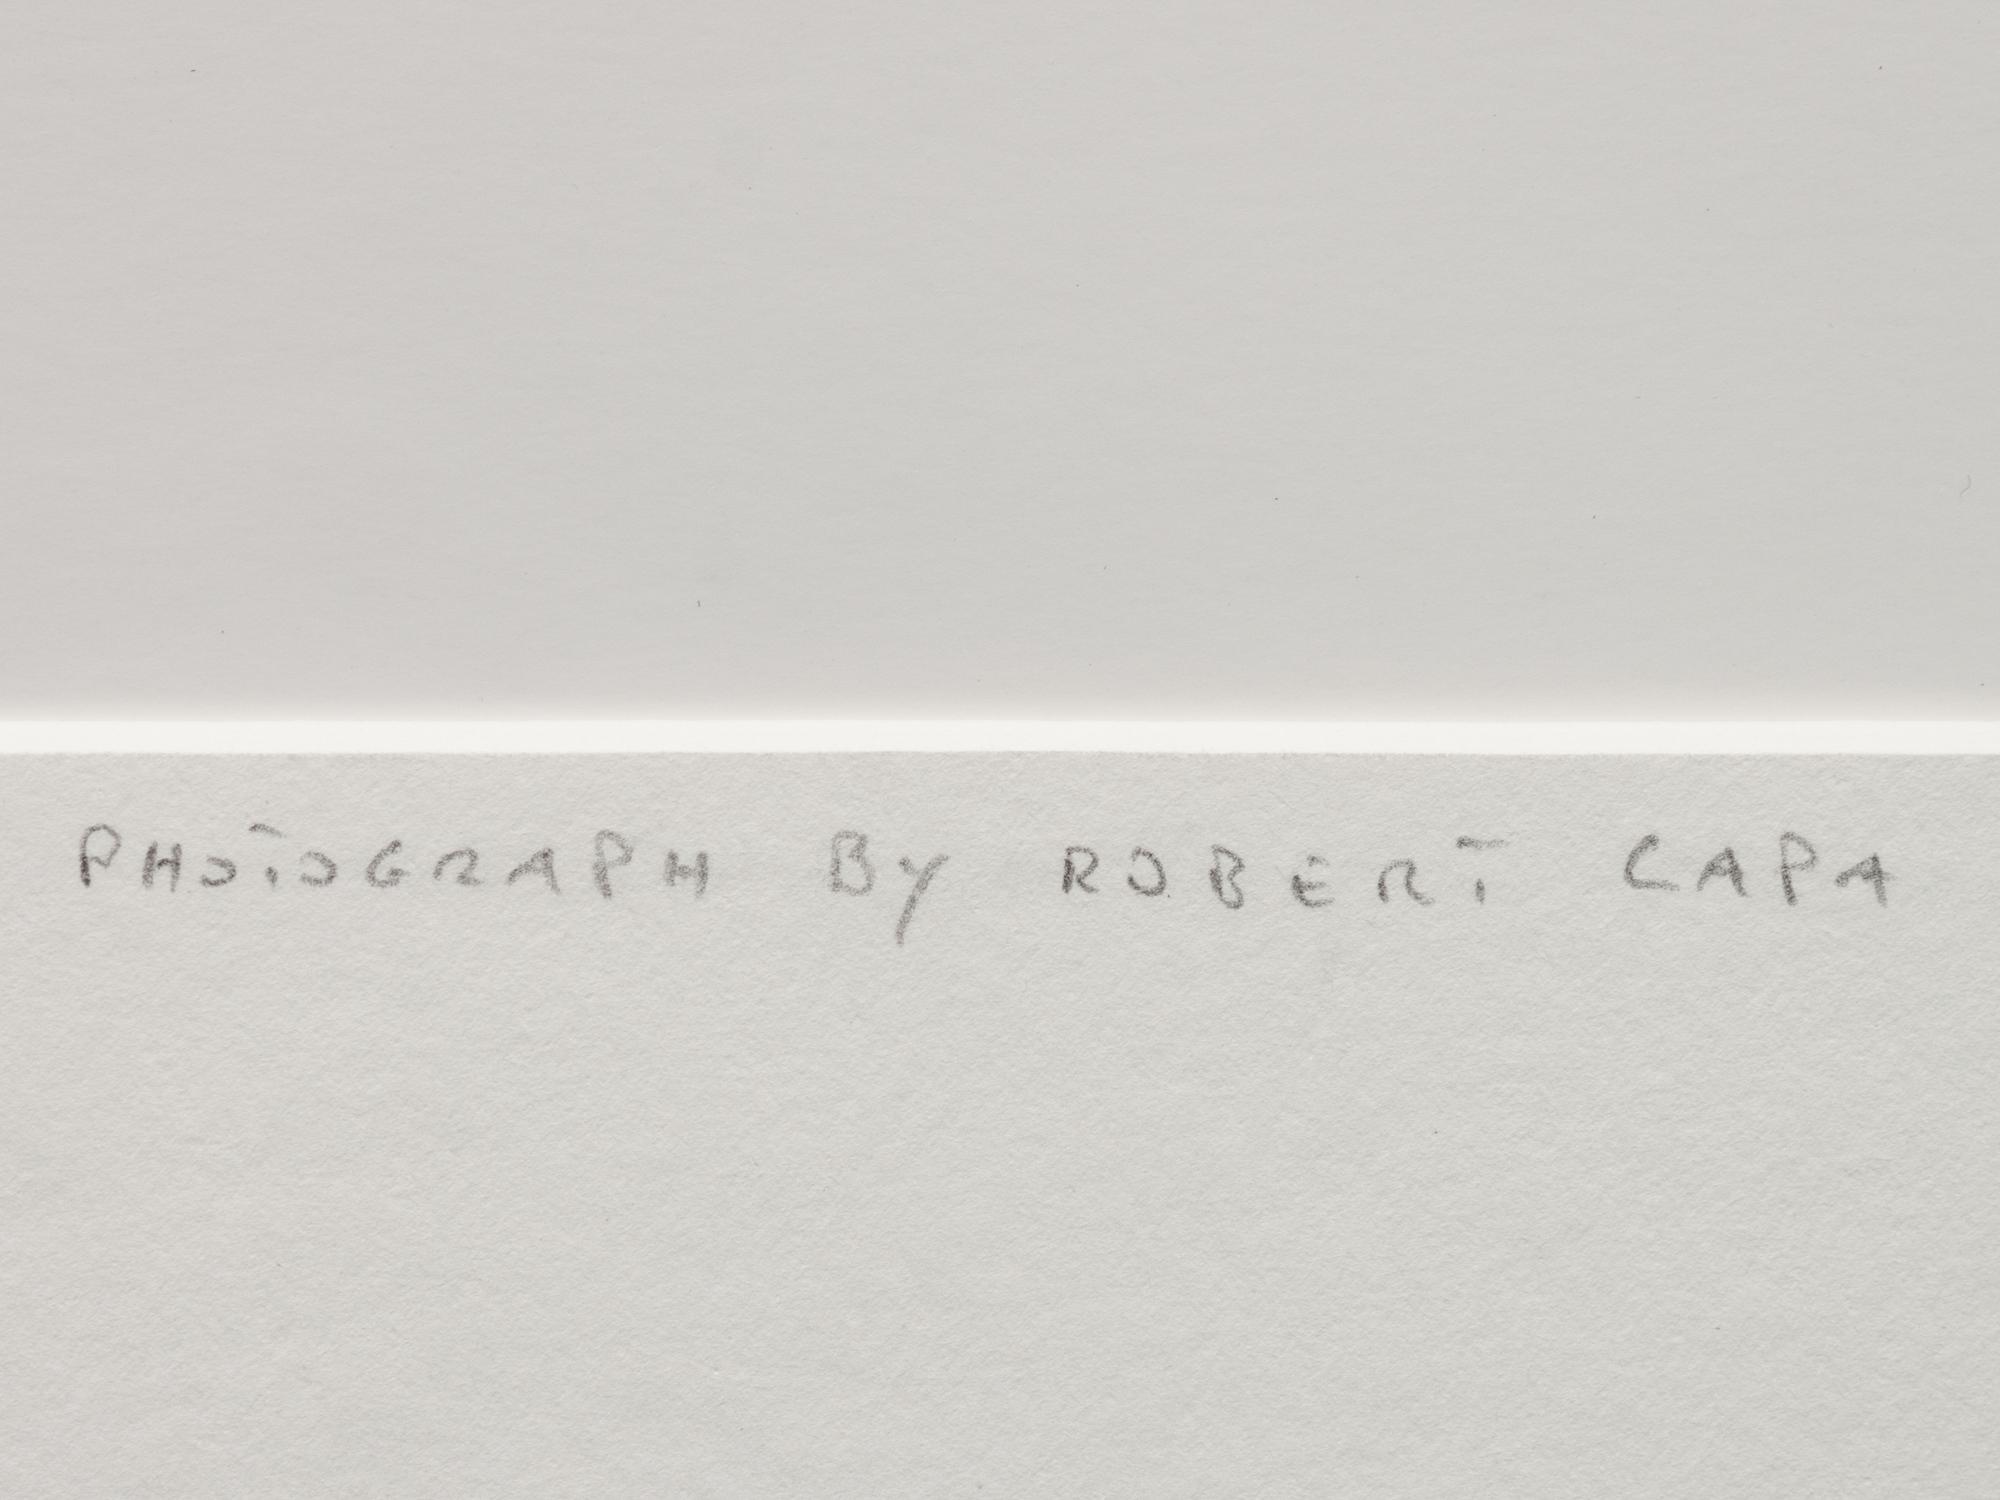 PHOTOGRAPH BY ROBERT CAPA